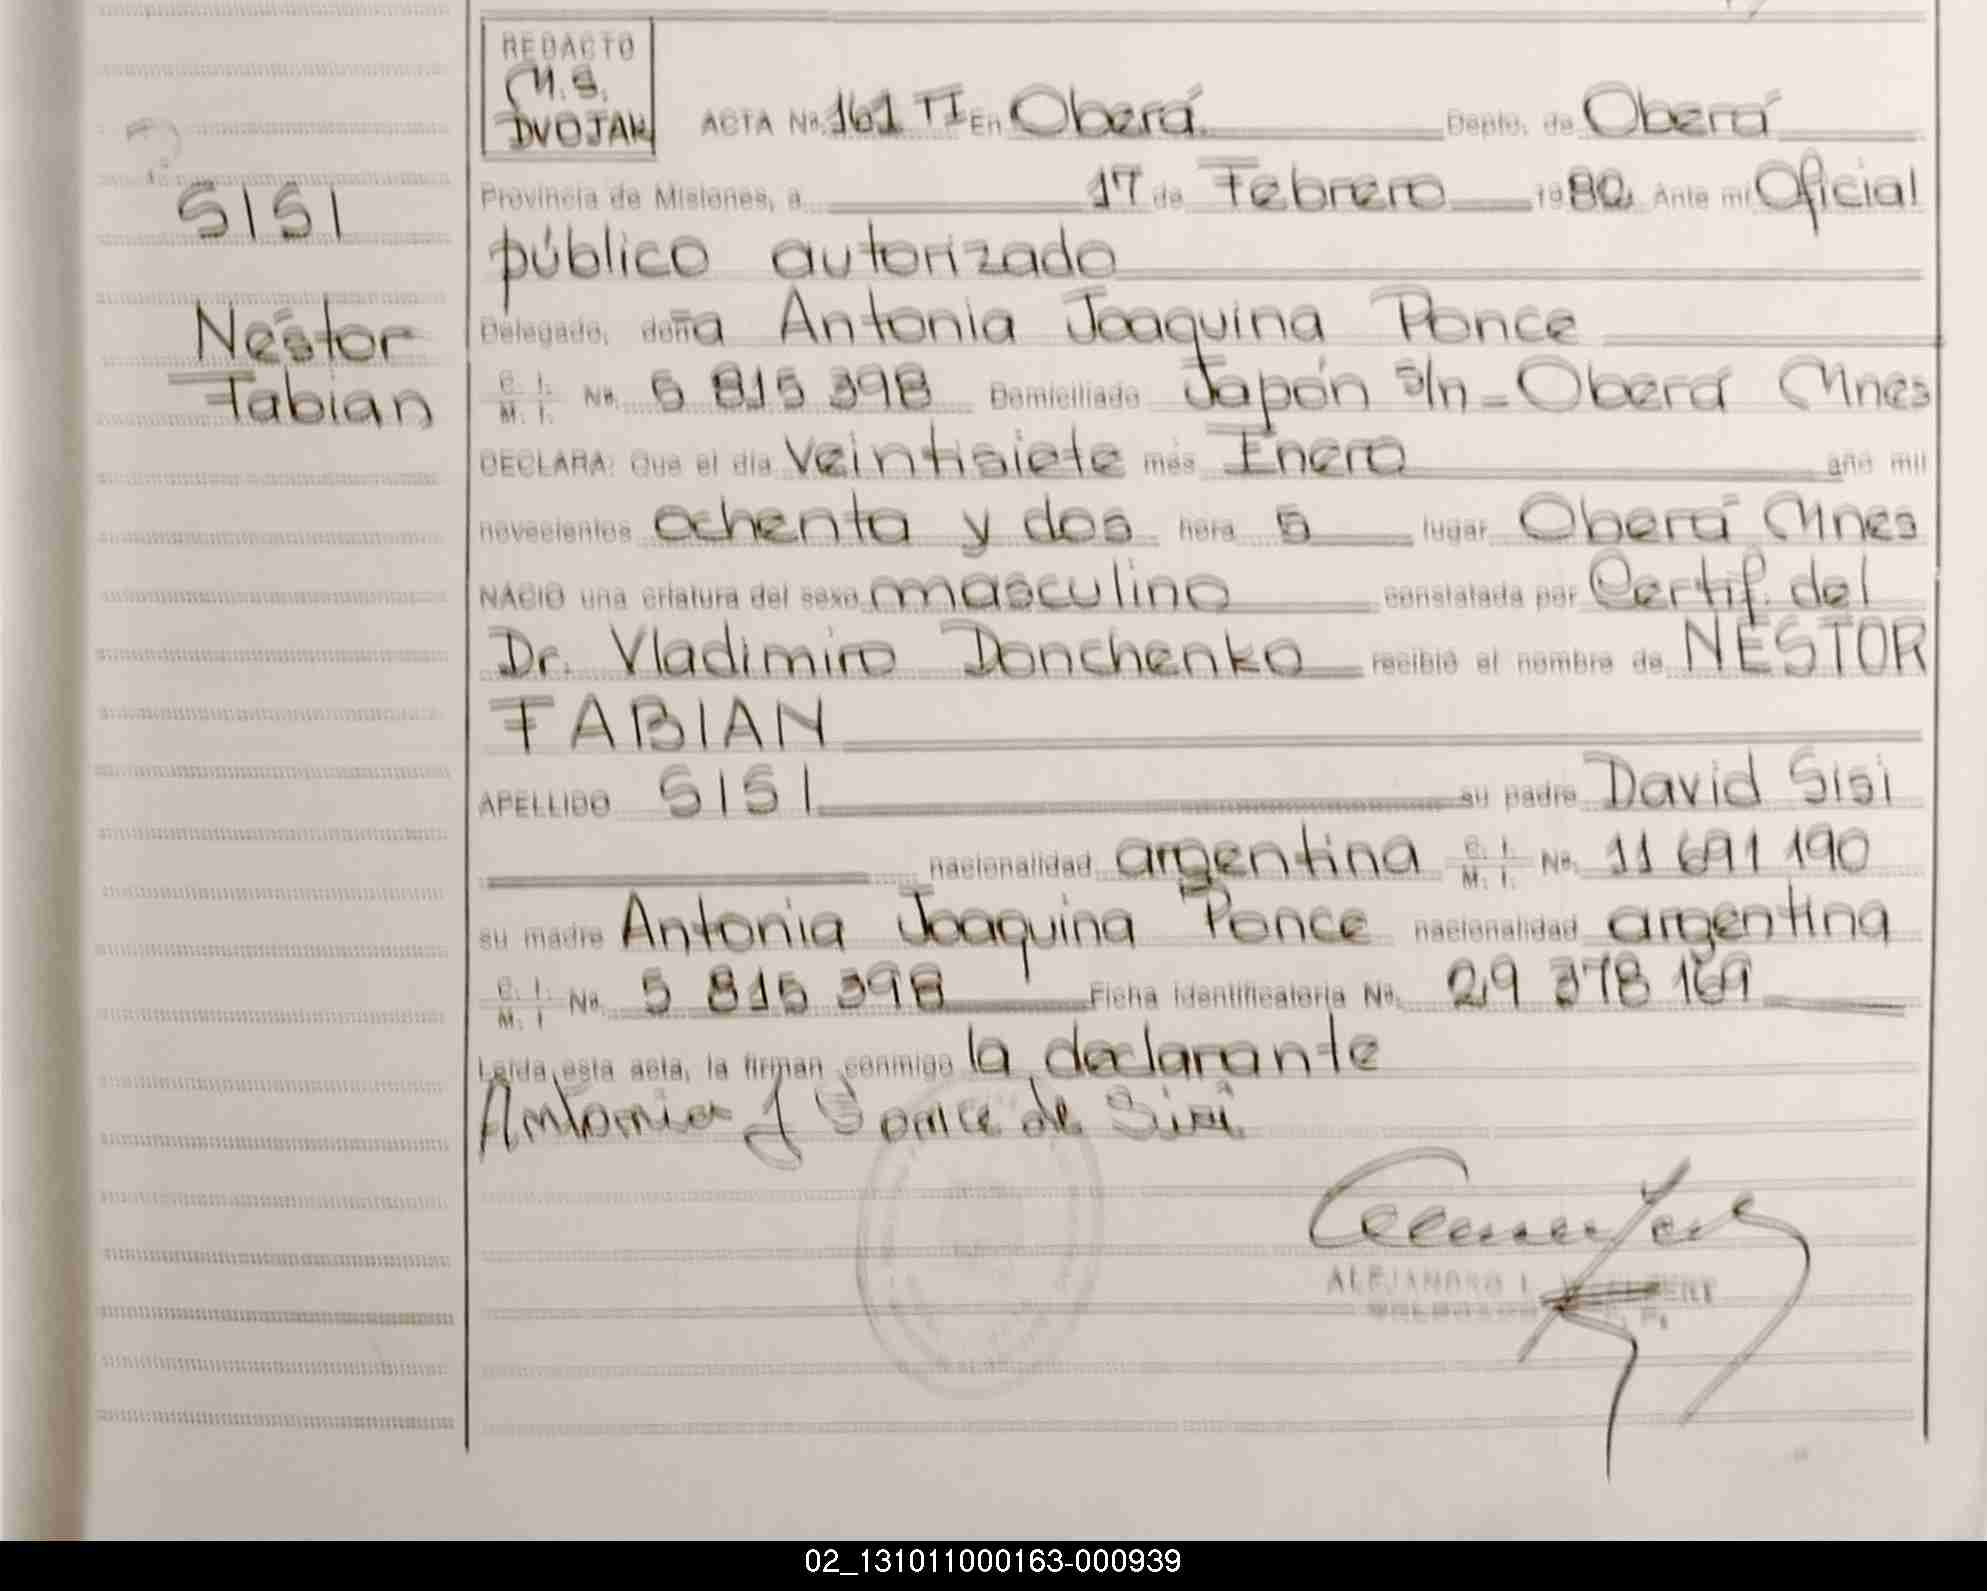 REDACTO
M.S.
DVOJAK
ACTA Nº 161 TI En Oberá Depto. de Oberá
SISI
Provincia de Misiones, a 17 de Febrero 1982 Ante mí Oficial
público autorizado
Néstor
Delegado, doña Antonia Joaquina Ponce
Fabian
C. I. M. I. Nº. 5 815 398 Domiciliado Japón s/n - Oberá Mnes
DECLARA: Que el día veintisiete mes Enero año mil
novecientos ochenta y dos hora 5 lugar Oberá Mnes
NACIO una criatura del sexo masculino constatada por Certif. del
Dr. Vladimiro Donchenko recibió el nombre de NÉSTOR
FABIAN
APELLIDO SISI su padre David Sisi
nacionalidad argentina C. I. M. I. Nº. 11 691 190
su madre Antonia Joaquina Ponce nacionalidad argentina
C. I. M. I Nº. 5 815 398 Ficha identificatoria Nº. 29 378 169
Leída esta acta, la firman conmigo la declarante
Antonia J Ponce de Sisi
ALEJANDRO I.
02_131011000163-000939